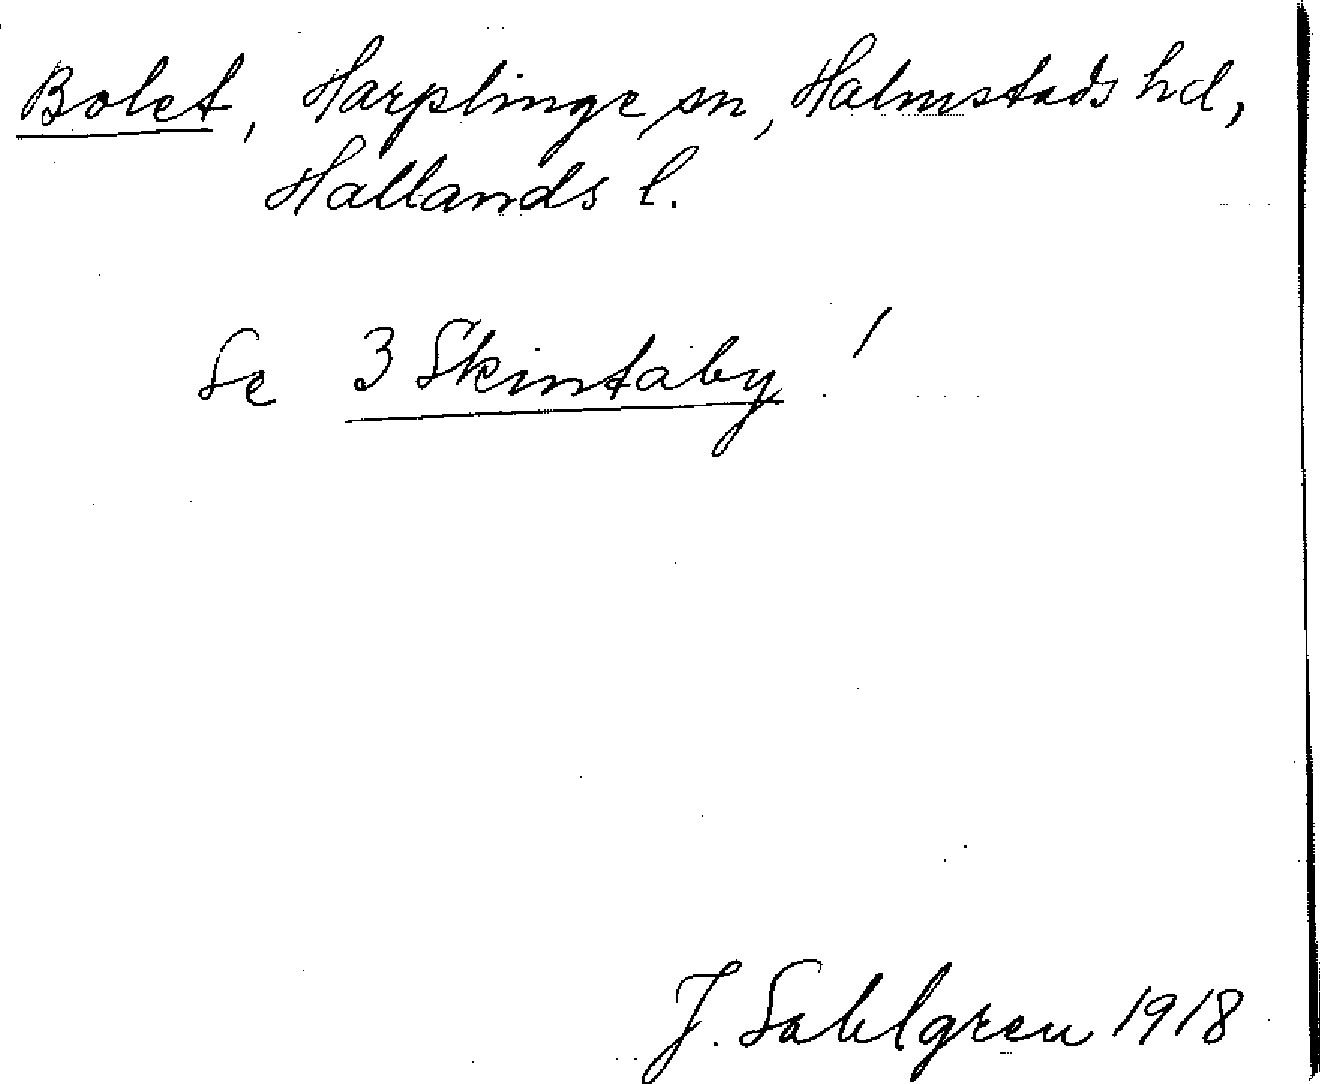 Bolet, Harplinge sn, Halmstads hd,
Hallands l.
Se 3 Skintaby!
J. Sahlgren 1918